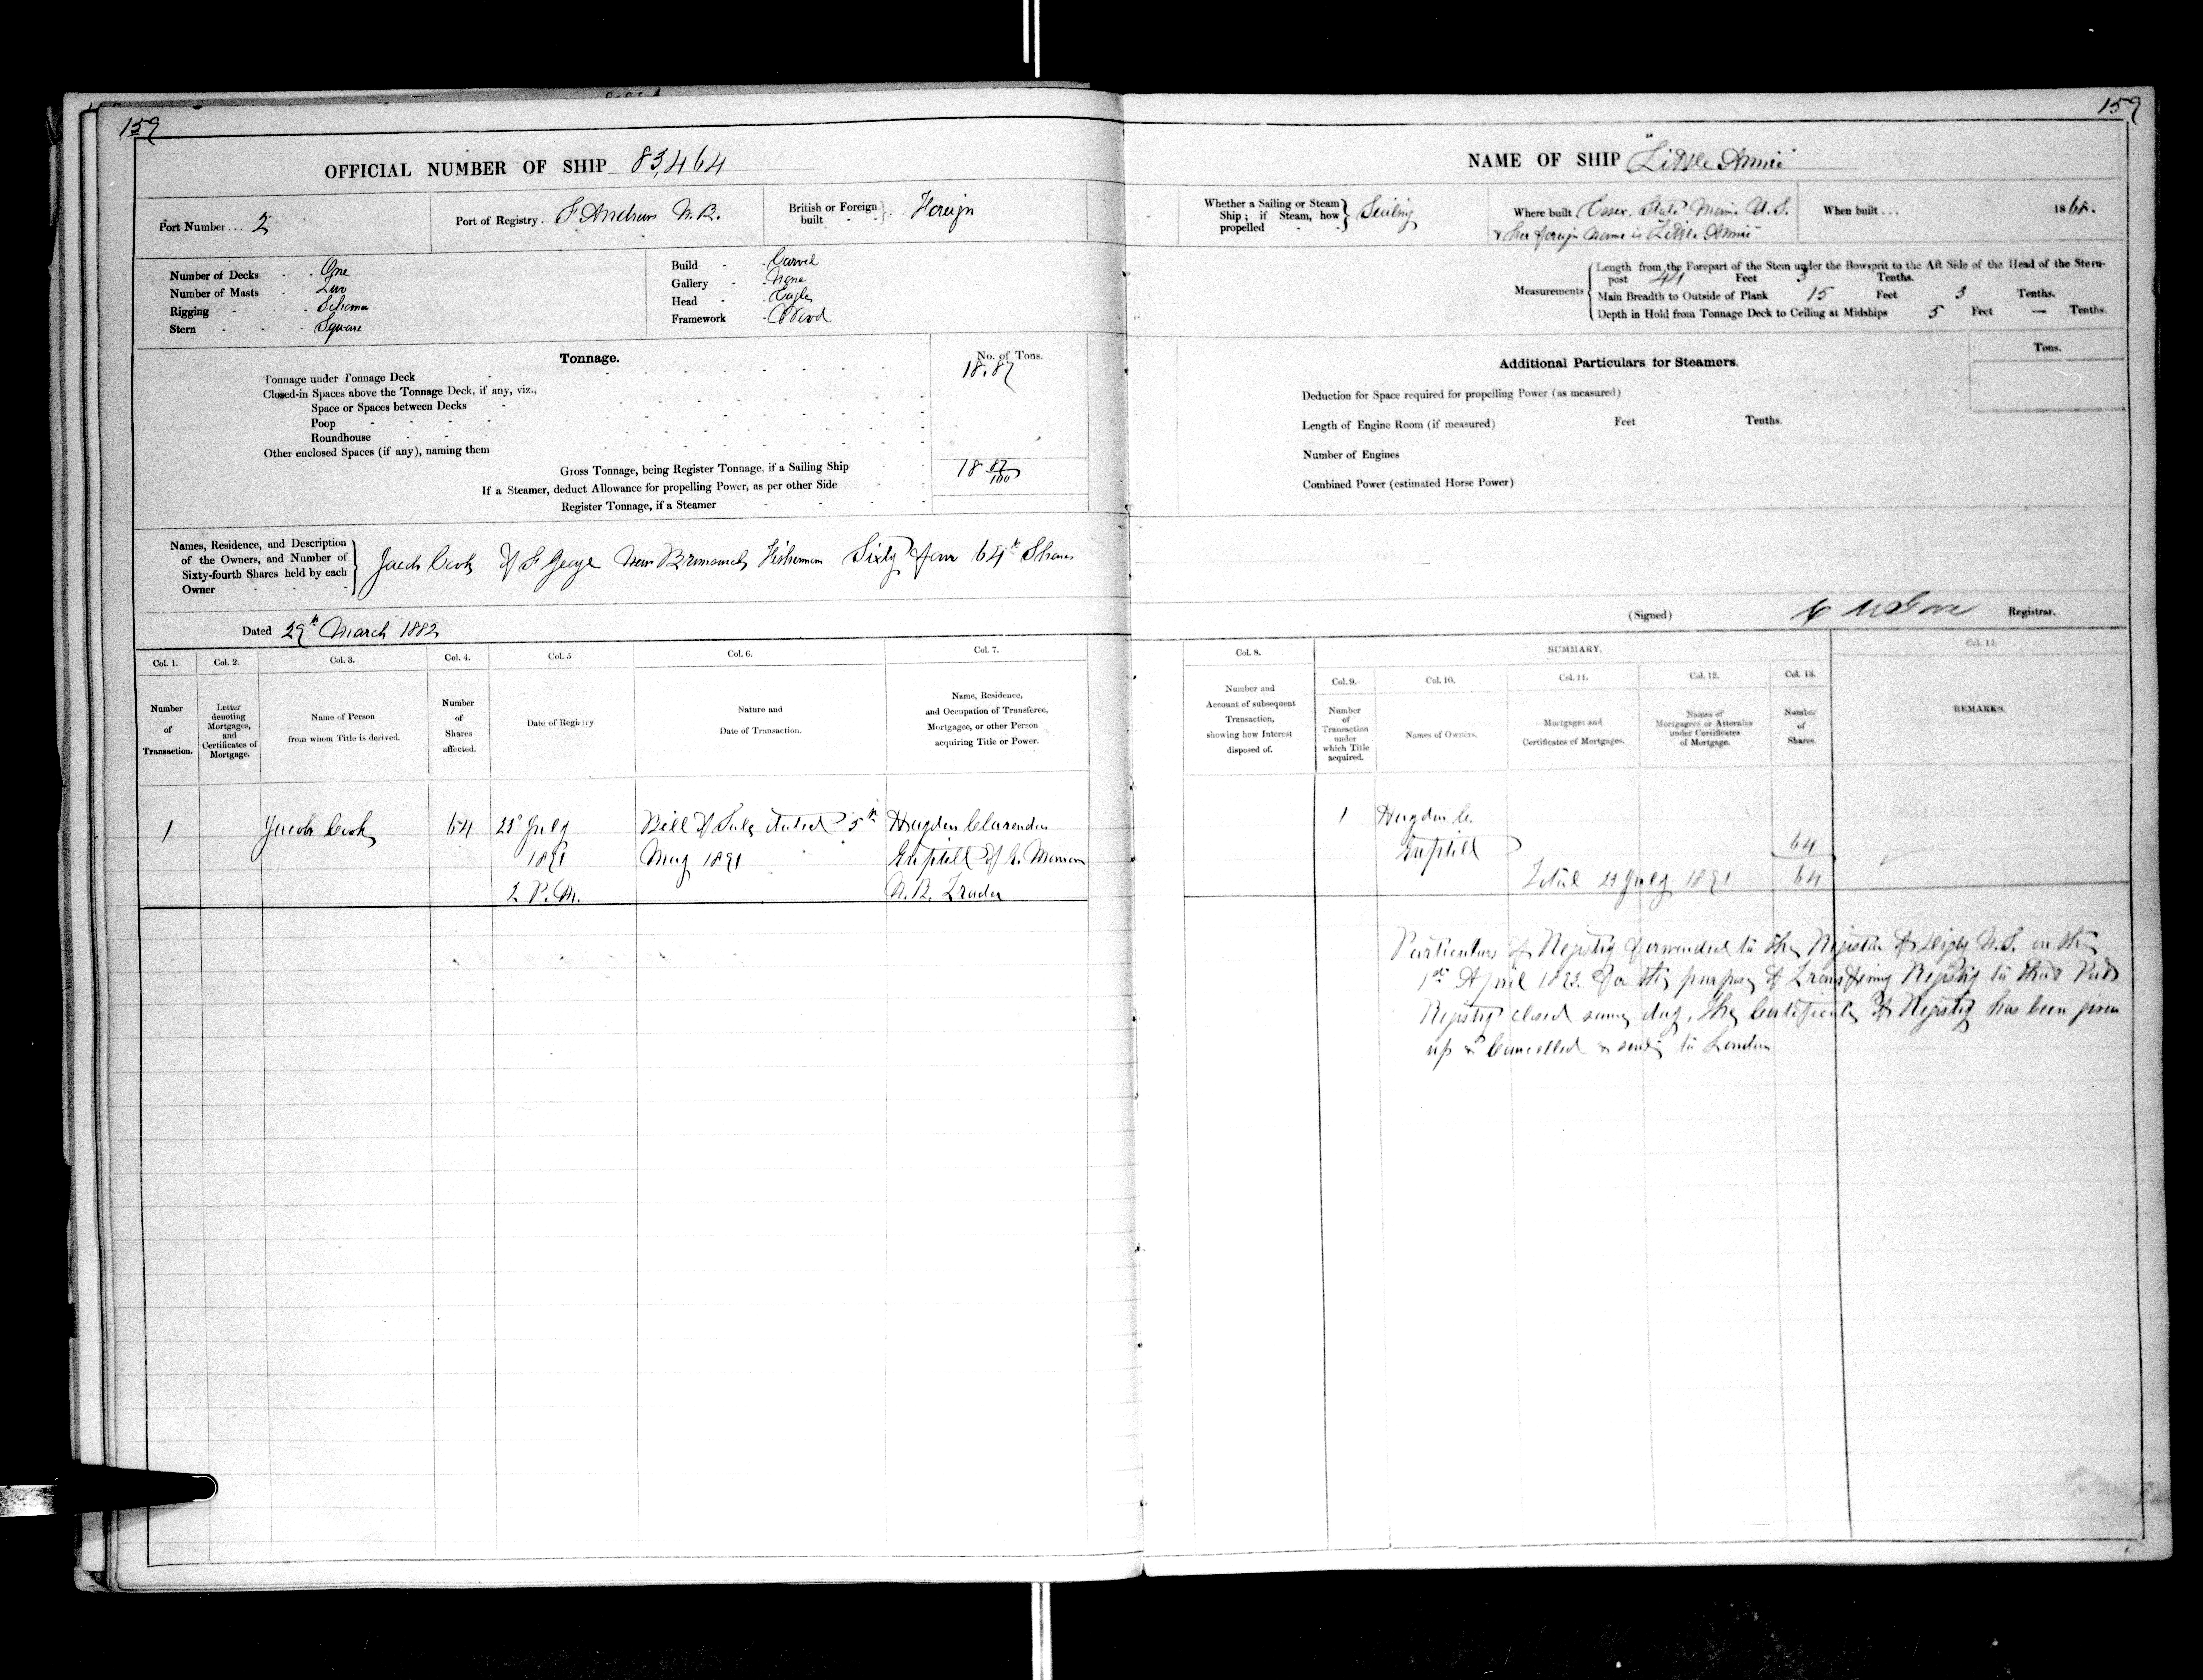 159
OFFICIAL NUMBER OF SHIP 83,464
Port Number... 2
Port of Registry. St Andrews N.B.
British or Foreign built - - Foreign
Number of Decks - - One
Number of Masts - - Two
Rigging - - - Schooner
Stern - - - Square
Build - - Carvel
Gallery - - None
Head - - Eagle
Framework - Wood
Tonnage.
No. of Tons.
Tonnage under Tonnage Deck 18.87
Closed-in Spaces above the Tonnage Deck, if any, viz.,
Space or Spaces between Decks
Poop
Roundhouse
Other enclosed Spaces (if any), naming them
Gross Tonnage, being Register Tonnage, if a Sailing Ship 18 87/100
If a Steamer, deduct Allowance for propelling Power, as per other Side
Register Tonnage, if a Steamer
Names, Residence, and Description
of the Owners, and Number of
Sixty-fourth Shares held by each
Owner - - -
Jacob Cook of St George New Brunswick Fisherman Sixty four 64th Shares
Dated 29th March 1882
Col. 1. Col. 2. Col. 3. Col. 4. Col. 5 Col. 6. Col. 7.
Number of Transaction.
Letter denoting Mortgages, and Certificates of Mortgage.
Name of Person from whom Title is derived.
Number of Shares affected.
Date of Registry
Nature and Date of Transaction.
Name, Residence, and Occupation of Transferee, Mortgagee, or other Person acquiring Title or Power.
1 Jacob Cook 64 25 July Bill of Sale dated 5th Hayden Clarendon
1891 May 1891 Guptill of G. Manan
2 P.M. N.B. Trader
159
NAME OF SHIP "Little Annie"
Whether a Sailing or Steam Ship; if Steam, how propelled - - Sailing
Where built Essex. State Maine U.S.
& her foreign name is "Little Annie"
When built... 1868.
Measurements
Length from the Forepart of the Stem under the Bowsprit to the Aft Side of the Head of the Stern-
post 44 Feet 3 Tenths.
Main Breadth to Outside of Plank 15 Feet 3 Tenths.
Depth in Hold from Tonnage Deck to Ceiling at Midships 5 Feet — Tenths.
Additional Particulars for Steamers.
Tons.
Deduction for Space required for propelling Power (as measured)
Length of Engine Room (if measured) Feet Tenths.
Number of Engines
Combined Power (estimated Horse Power)
(Signed) Registrar.
Col. 8. SUMMARY. Col. 14.
Col. 9. Col. 10. Col. 11. Col. 12. Col. 13.
Number and Account of subsequent Transaction, showing how Interest disposed of.
Number of Transaction under which Title acquired.
Names of Owners.
Mortgages and Certificates of Mortgages.
Names of Mortgagees or Attornies under Certificates of Mortgage.
Number of Shares.
REMARKS.
1 Hayden C.
Guptill 64
Total 25 July 1891 64
Particulars of Registry forwarded to the Registrar of Digby N.S. on the
1st April 1893. for the purpose of Transfering Registry to that Port
Registry closed same day. The Certificate of Registry has been given
up & Cancelled & sent to London